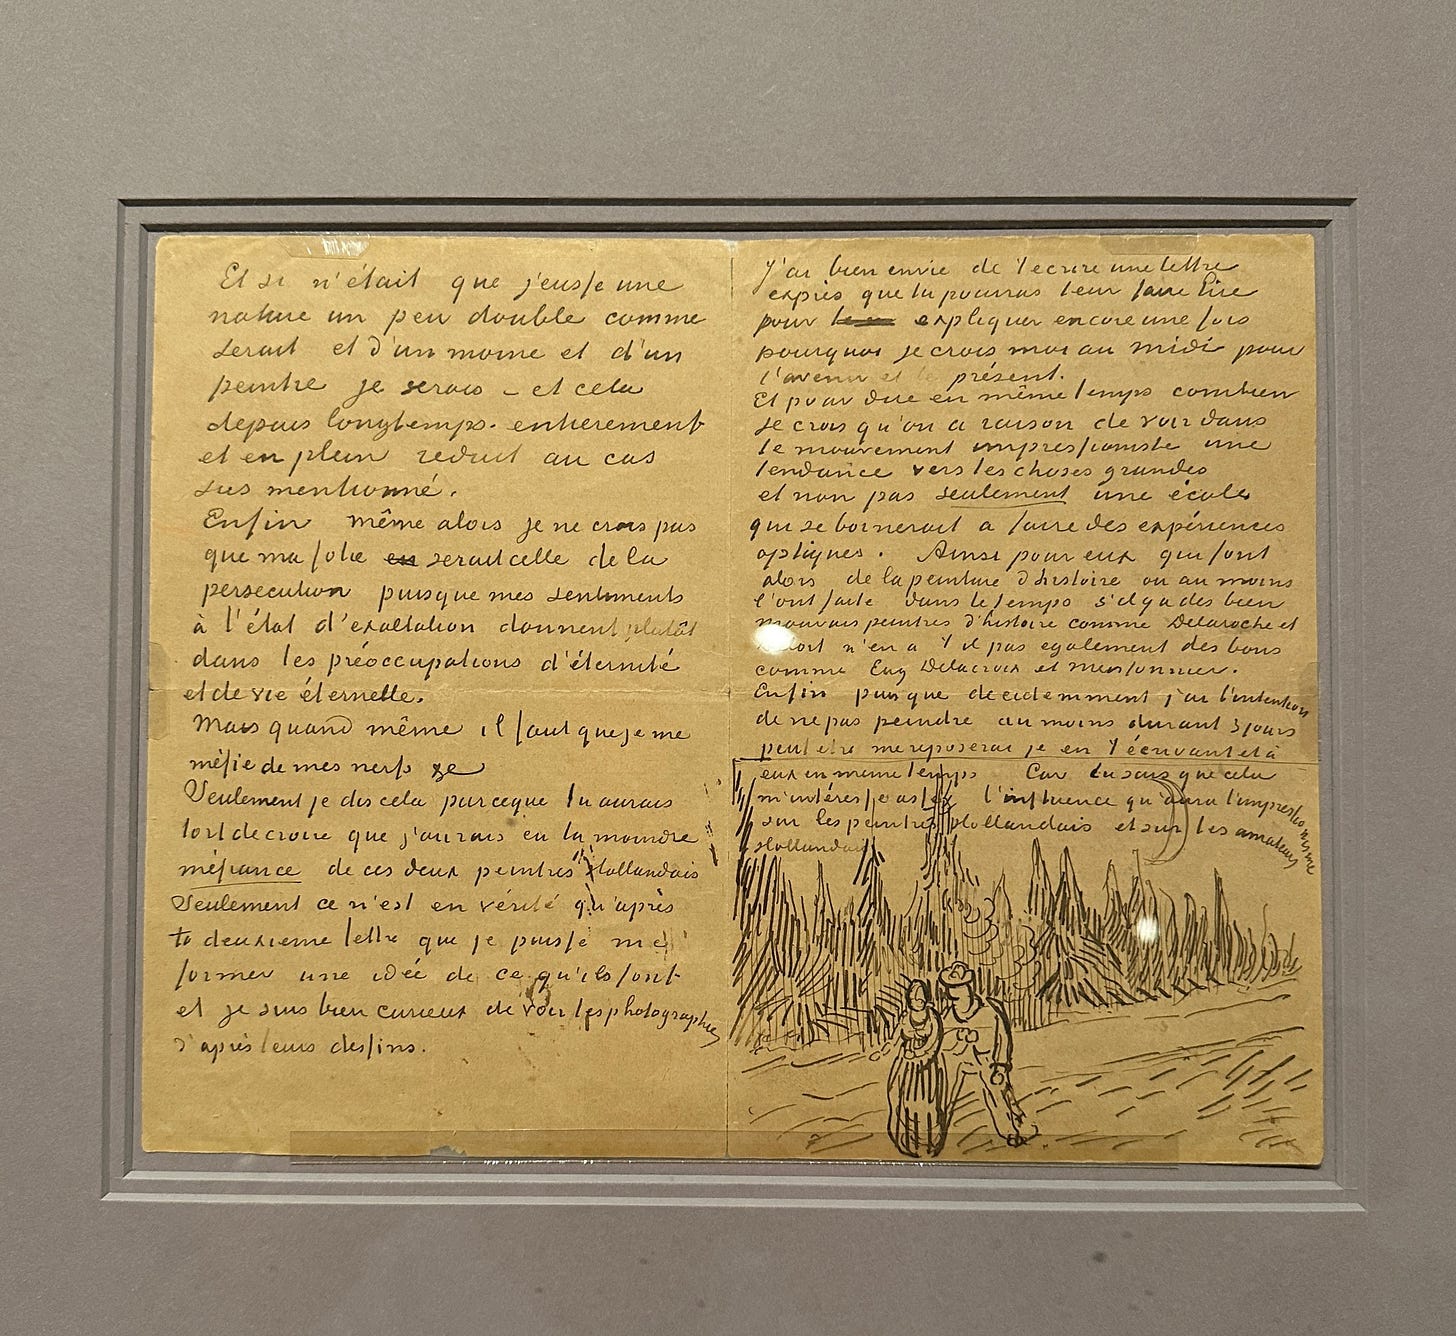 Et si n'était que j'eusse une
nature un peu double comme
serait et d'un moine et d'un
peintre je serais – et cela
depuis longtemps. entierement
et en plein reduit au cas
sus mentionné.
Enfin même alors je ne crois pas
que ma folie en serait celle de la
persecution puisque mes sentiments
à l'état d'exaltation donnent plutôt
dans les préoccupations d'éternité
et de vie éternelle.
Mais quand même il faut que je me
méfie de mes nerfs
Seulement je dis cela parceque tu aurais
tort de croire que j'aurais eu la moindre
méfiance de ces deux peintres Hollandais
Seulement ce n'est en vérité qu'après
ta deuxieme lettre que je puisse me
former une idée de ce qu'ils font
et je suis bien curieux de voir les photographies
d'après leurs dessins.
J'ai bien envie de t'ecrire une lettre
exprès que tu pourras leur faire lire
pour expliquer encore une fois
pourquoi je crois moi au midi pour
l'avenir et le présent.
Et pour dire en même temps combien
je crois qu'on a raison de voir dans
le mouvement impressioniste une
tendance vers les choses grandes
et non pas seulement une école
qui se bornerait a faire des expériences
optiques. Ainsi pour eux qui font
alors de la peinture d'histoire ou au moins
l'ont faite dans le temps s'il y a des bien
mauvais peintres d'histoire comme Delaroche et
n'en a t il pas egalement des bons
comme Eug Delacroix et Meissonnier.
Enfin puisque decidemment j'ai l'intention
de ne pas peindre au moins durant 3 jours
peut etre me reposerai je en t'écrivant et à
eux en meme temps Car tu sais que cela
m'intéresse assez l'influence qu'aura l'impressionisme
sur les peintres Hollandais et sur les amateurs
Hollandais